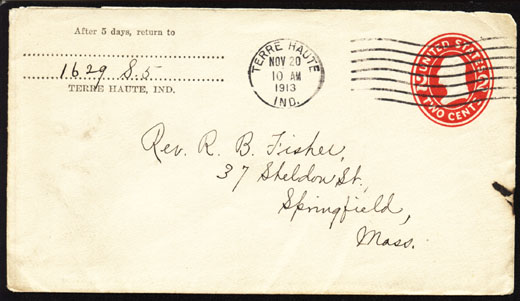 After 5 days, return to
1629 S. 5
TERRE HAUTE, IND.
TERRE HAUTE
NOV 20
10 AM
1913
IND.
UNITED STATES
2 2
TWO CENTS
Rev. R. B. Fisher,
37 Sheldon St.,
Springfield,
Mass.